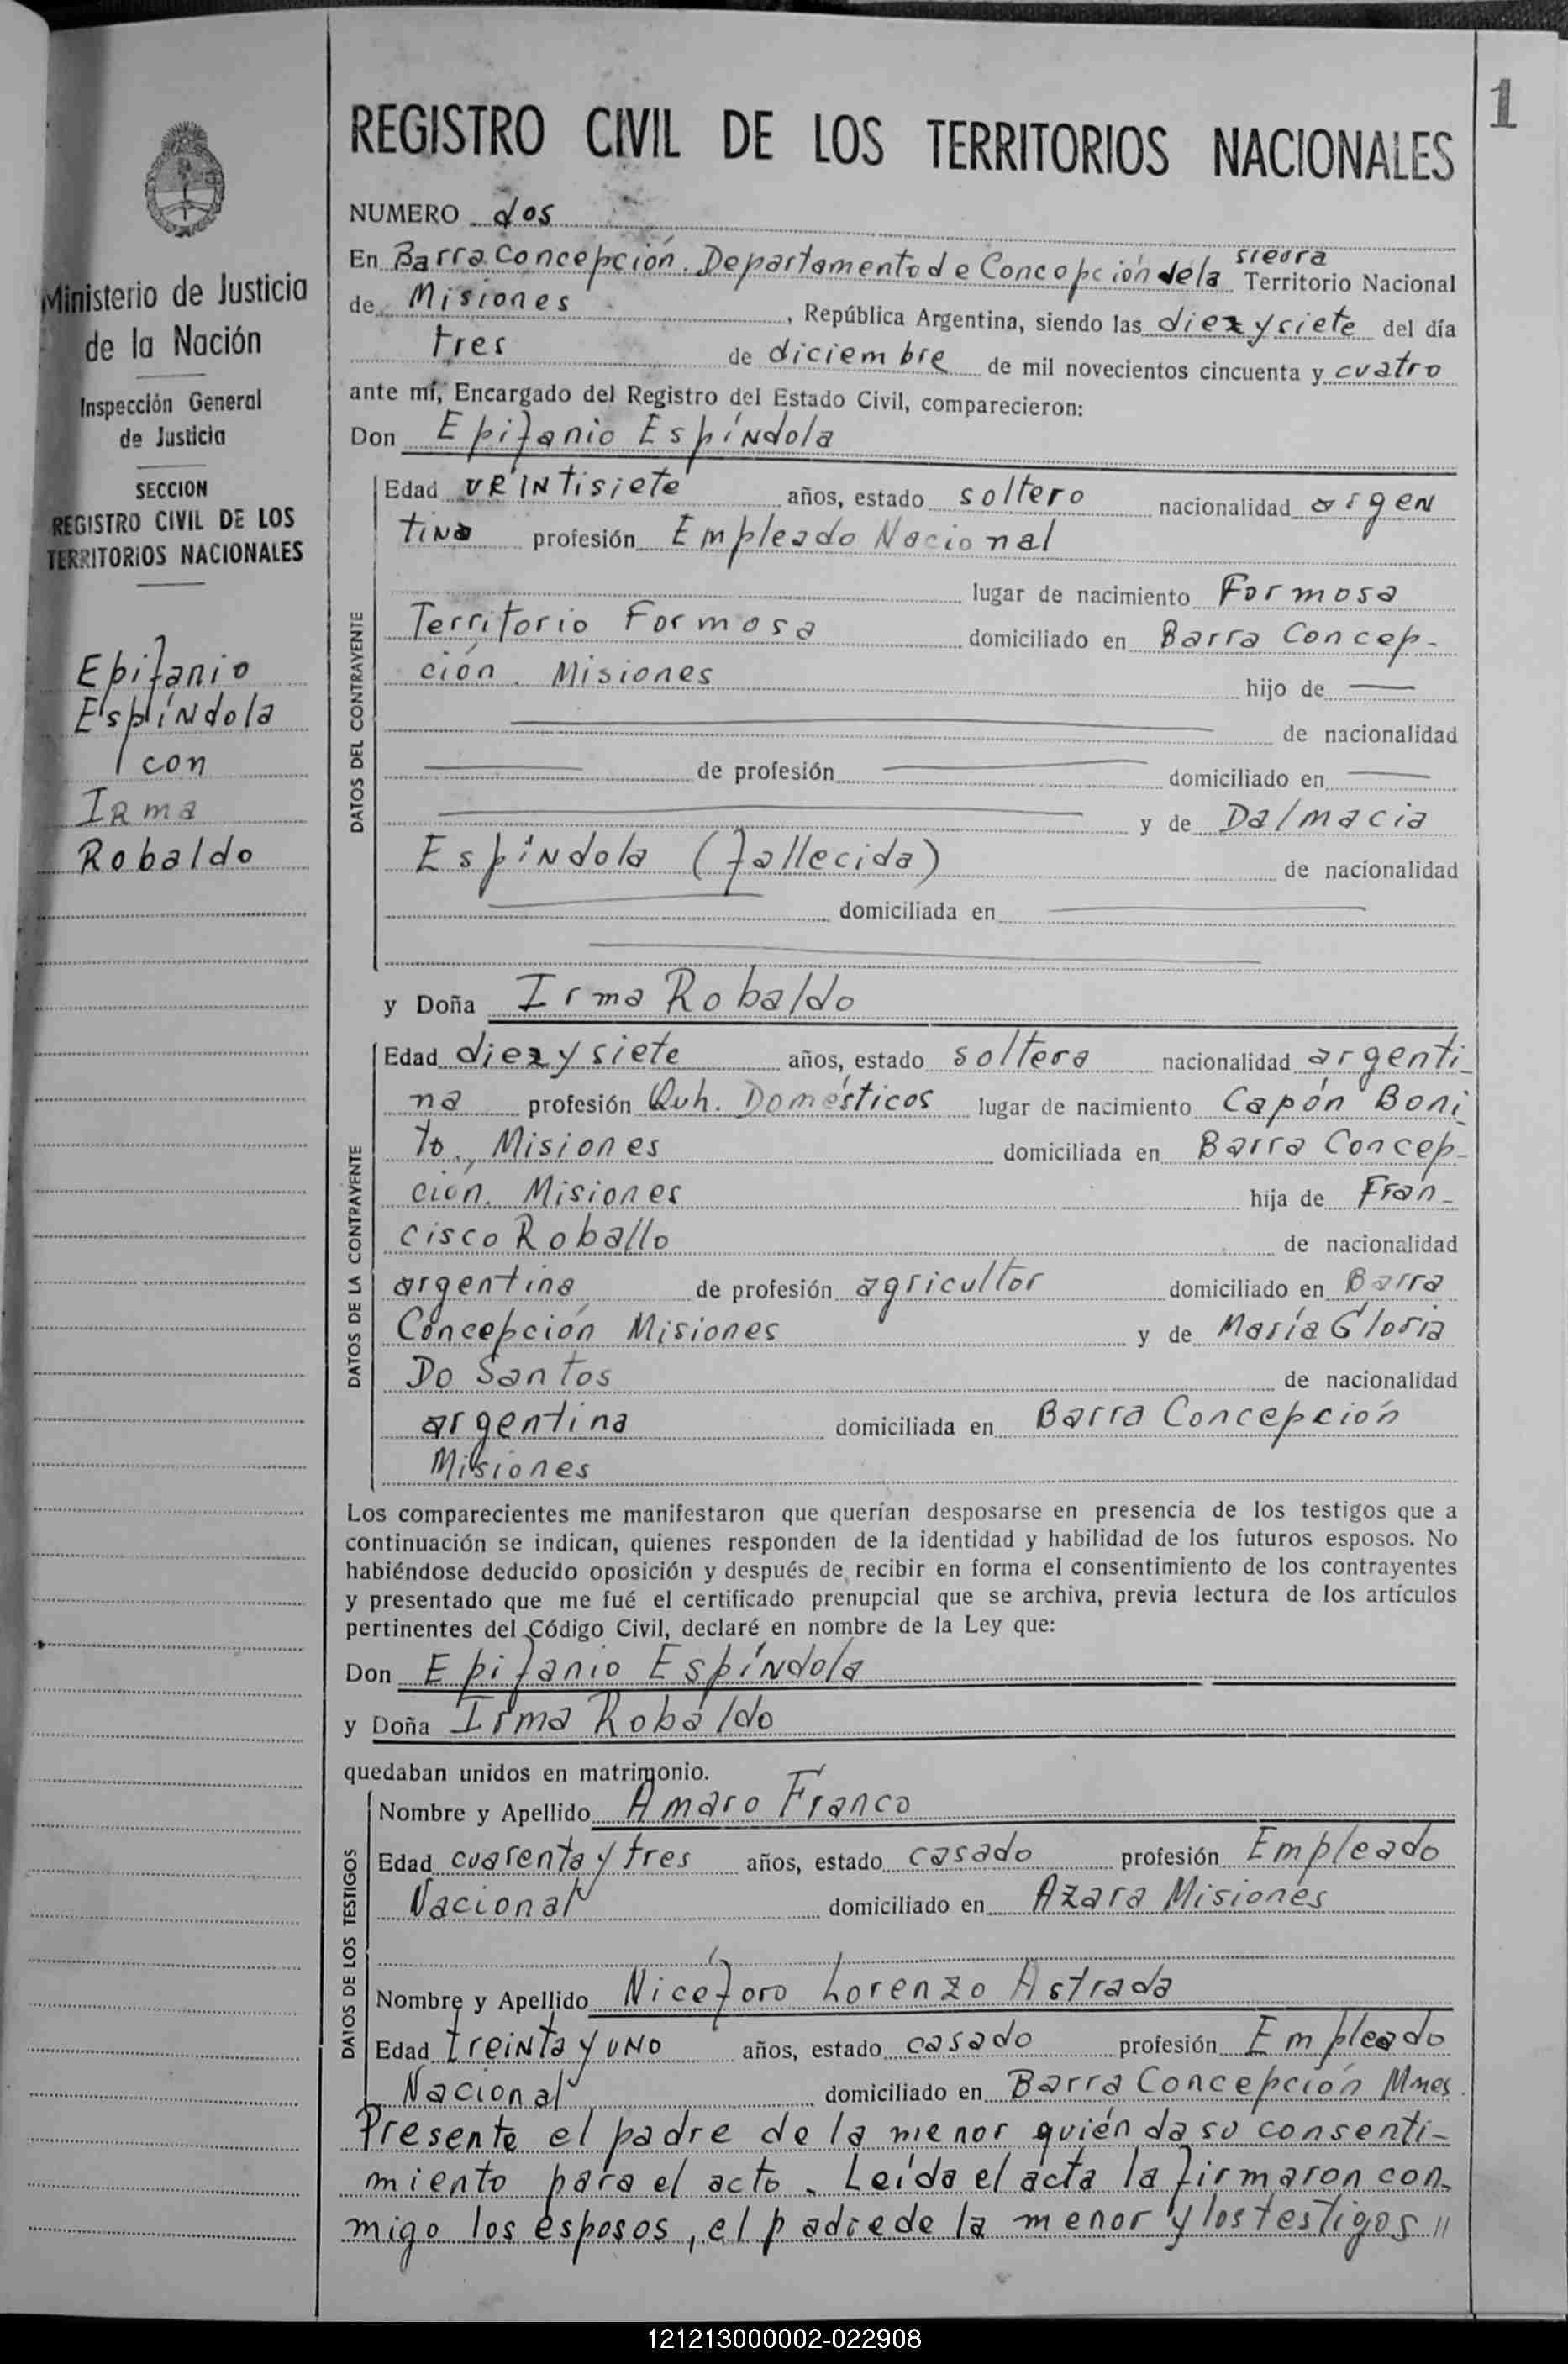 1
REGISTRO CIVIL DE LOS TERRITORIOS NACIONALES
Ministerio de Justicia
de la Nación
Inspección General
de Justicia
SECCION
REGISTRO CIVIL DE LOS
TERRITORIOS NACIONALES
Epifanio
Espíndola
con
Irma
Robaldo
NUMERO dos
En Barra Concepción. Departamento de Concepción de la sierra Territorio Nacional
de Misiones, República Argentina, siendo las diez y siete del día
tres de diciembre de mil novecientos cincuenta y cuatro
ante mí, Encargado del Registro del Estado Civil, comparecieron:
Don Epifanio Espíndola
DATOS DEL CONTRAYENTE
Edad veintisiete años, estado soltero nacionalidad argen
tina profesión Empleado Nacional
lugar de nacimiento Formosa
Territorio Formosa domiciliado en Barra Concep-
ción. Misiones hijo de
de nacionalidad
de profesión domiciliado en
y de Dalmacia
Espíndola (fallecida) de nacionalidad
domiciliada en
y Doña Irma Robaldo
DATOS DE LA CONTRAYENTE
Edad diez y siete años, estado soltera nacionalidad argenti-
na profesión Quh. Domésticos lugar de nacimiento Capón Boni
to., Misiones domiciliada en Barra Concep-
ción. Misiones hija de Fran-
cisco Roballo de nacionalidad
argentina de profesión agricultor domiciliado en Barra
Concepción Misiones y de María Gloria
Do Santos de nacionalidad
argentina domiciliada en Barra Concepción
Misiones
Los comparecientes me manifestaron que querían desposarse en presencia de los testigos que a
continuación se indican, quienes responden de la identidad y habilidad de los futuros esposos. No
habiéndose deducido oposición y después de recibir en forma el consentimiento de los contrayentes
y presentado que me fué el certificado prenupcial que se archiva, previa lectura de los artículos
pertinentes del Código Civil, declaré en nombre de la Ley que:
Don Epifanio Espíndola
y Doña Irma Robaldo
quedaban unidos en matrimonio.
DATOS DE LOS TESTIGOS
Nombre y Apellido Amaro Franco
Edad cuarenta y tres años, estado casado profesión Empleado
Nacional domiciliado en Azara Misiones
Nombre y Apellido Nicéforo Lorenzo Astrada
Edad treinta y uno años, estado casado profesión Empleado
Nacional domiciliado en Barra Concepción Mnes.
Presente el padre de la menor quién da su consenti-
miento para el acto. Leída el acta la firmaron con-
migo los esposos, el padre de la menor y los testigos //
121213000002-022908